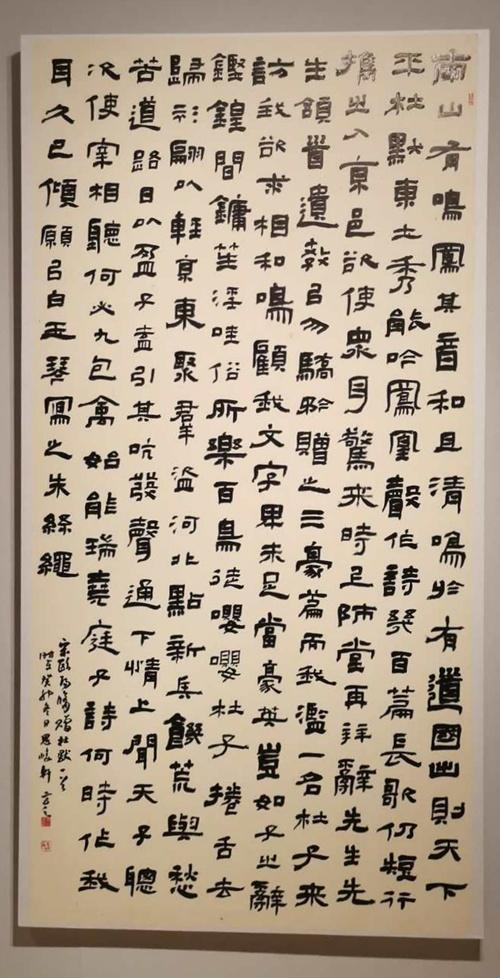 南山有鳴鳳其音和且清鳴於有道國出則天下
平杜默東土秀能吟鳳凰聲作詩幾百篇長歌仍短行
攜之入京邑欲使眾耳驚來時上師堂再拜辭先生先
生頷首遣教以勿驕矜贈之三豪篇而我濫一名杜子來
訪我欲求相和鳴顧我文字卑未足當豪英豈如子之辭
鏗鍠間鏞笙淫哇俗所樂百鳥徒嚶嚶杜子捲舌去
歸衫翩以輕京東聚群盜河北點新兵饑荒與愁
苦道路日以盈子盍引其吭發聲通下情上聞天子聰
次使宰相聽何必九包禽始能瑞堯庭子詩何時作我
耳久已傾願以白玉琴寫之朱絲繩
宋歐陽脩贈杜默一首
時在癸卯冬日思軒